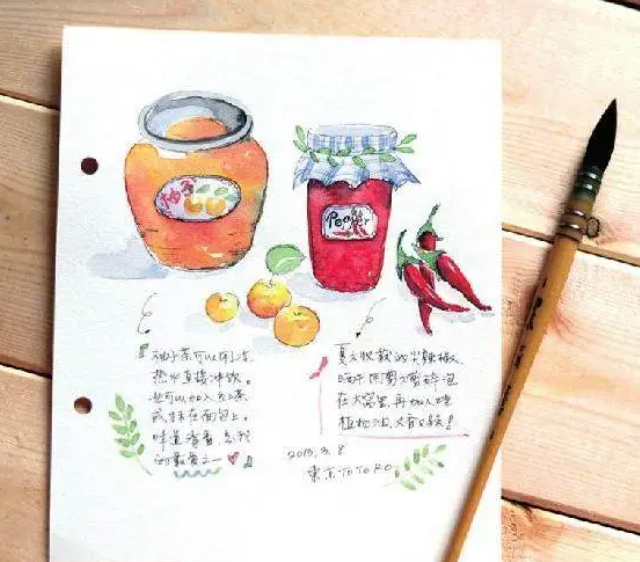 柚子
Pepper
柚子茶可以用冷
热水直接冲饮。
也可以加入红茶
或抹在面包上。
味道清香,
的最爱之一
夏天收获的尖辣椒,
晒干用剪刀剪碎泡
在大 里,再加入
植物油,又香又辣!
2013.3.8
東京TOTORO